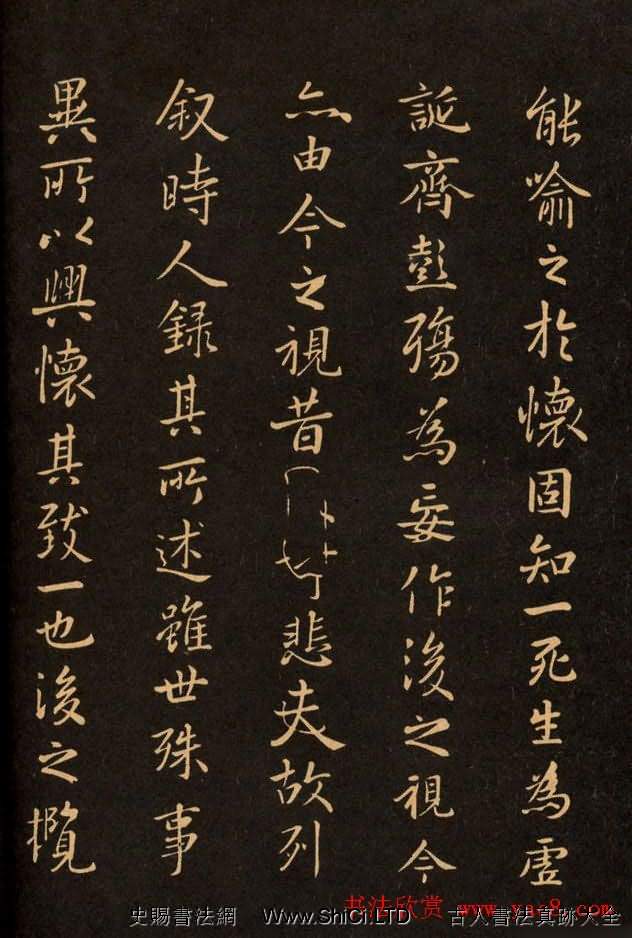 能喻之於懷固知一死生為虛
誕齊彭殤為妄作後之視今
亦由今之視昔悲夫故列
叙時人錄其所述雖世殊事
異所以興懷其致一也後之攬
书法欣赏 www.yac8.com
史賜書法網 Www.ShiCi.LTD 古人書法真跡大全